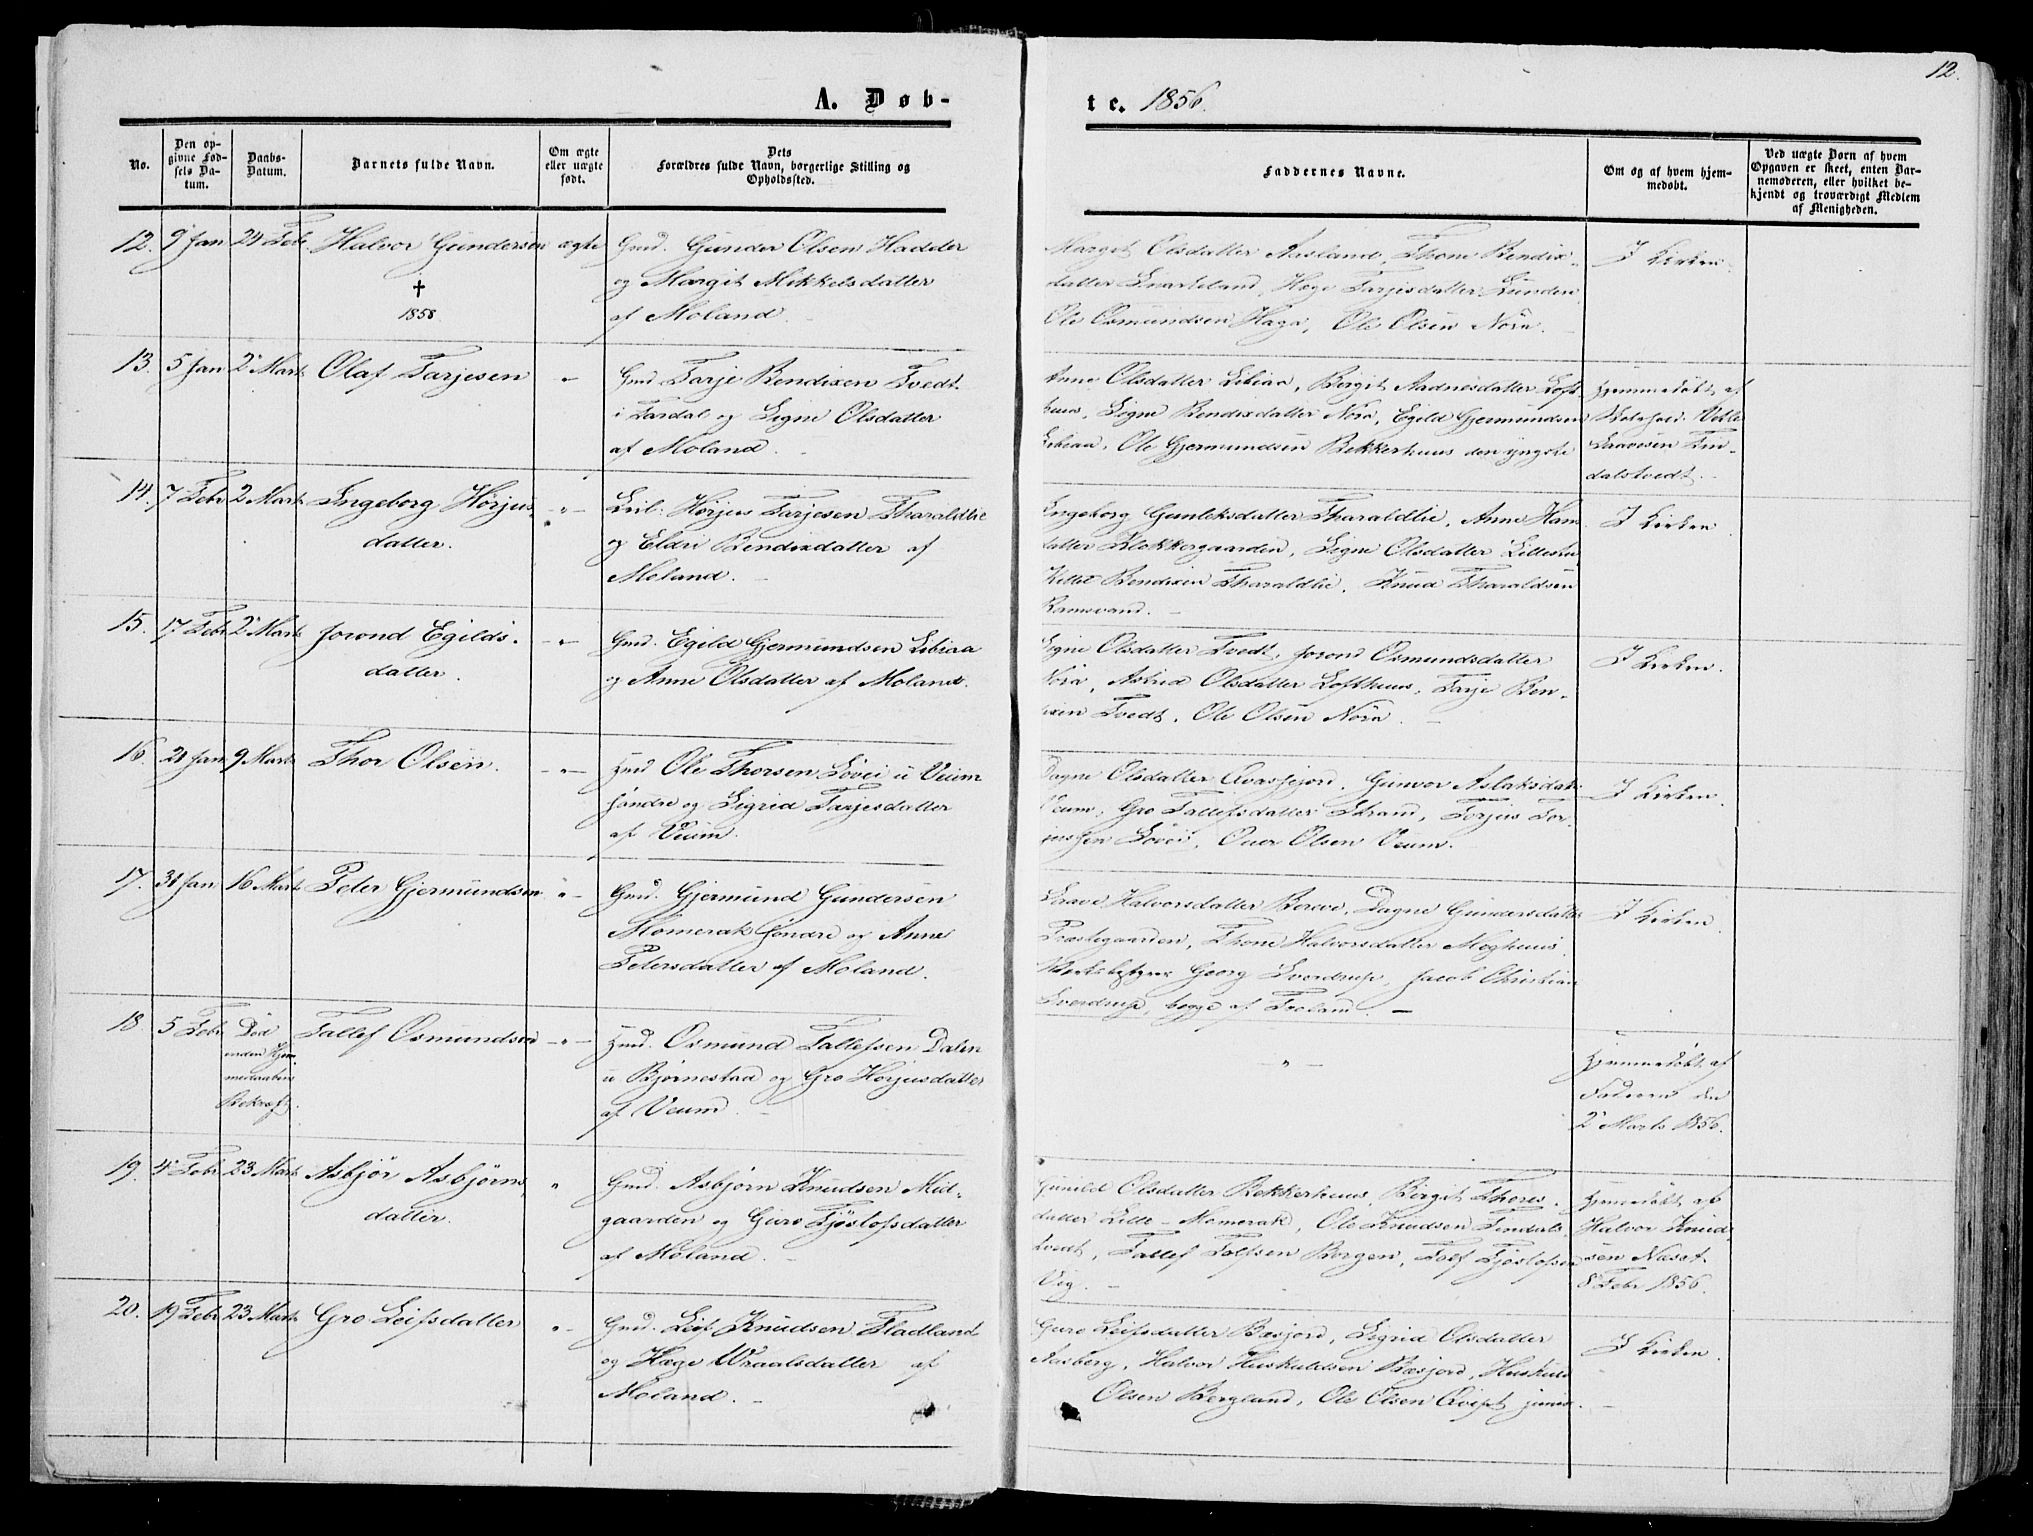 12.
A. Døb-
te. 1856.
No.
Den op-
givne Fød-
sels Da-
tum.
Daabs-
Datum.
Barnets fulde Navn.
Om ægte
eller uægte
født.
Dets
Forældres fulde Navn, borgerlige Stilling og
Opholdssted.
Faddernes Navne.
Om og af hvem hjem-
medøbt.
Ved uægte Børn af hvem
Opgaven er skeet, enten Bar-
nemoderen, eller hvilket be-
kjendt og troværdigt Medlem
af Menigheden.
12. 9 Jan 24 Feb. Halvor Gundersen ægte Gmd. Gunder Olsen Hadder
† og Margit Mikkelsdatter
1858 af Moland.
Marget Olsdatter Aasland, Thone Bendix-
datter Snarteland, Hæge Tarjesdatter
Ole Osmundsen Haga, Ole Olsen Nora.
I Kirken.
13. 5 Jan 2 Marts Olaf Tarjesen " Gmd Tarje Bendixen Tvedt
og Signe Olsdatter
af Moland.
Anne Olsdatter Libiaa, Birgit Aadnesdatter Loft-
huus, Signe Bendixdatter Nora, Egild Gjermundsen
Libiaa, Ole Gjermundsen Bekkerhuus den yngste
Hjemmedøbt af
dalstvedt.
14. 7 Febr 2 Marts Ingeborg Hørjus- " Hørjus Tarjesen Tharaldlie
datter. og Eldri Bendixdatter af
Moland.
Ingeborg Gunleksdatter Tharaldlie, Anne
datter Klokkergaarden, Signe Olsdatter
Bendixen Tharaldlie, Knud Tharaldsen
Ramsvand.
I Kirken
15. 17 Febr 2 Marts Jorond Egilds- " Gmd. Egild Gjermundsen Libiaa
datter. og Anne Olsdatter af Moland.
Signe Olsdatter Tvedt, Jorond Osmundsdatter
Nora, Astrid Olsdatter Lofthuus, Tarje Ben-
dixen Tvedt, Ole Olsen Nora.
I Kirken.
16. 9 Marts Thor Olsen. " Hmd Ole Thorsen Løvei u Veum
søndre og Sigrid Tarjesdatter
af Veum.
Dagne Olsdatter Qvasfejord, Gunvor Aslaksdatt
Veum, Gro Tallefsdatter Strand, Torjus Tor-
jussen Løvei, Over Olsen Veum.
I Kirken.
17. 31 Jan 16 Marts Peter Gjermundsen " Gmd. Gjermund Gundersen
Momerak søndre og Anne
Petersdatter af Moland.
Halvorsdatter Dagne Gundersdatter
Præstegaarden, Thone Halvorsdatter Moghuus.
Georg Sverdrup, Jacob Christian
Sverdrup, begge af Froland.
I Kirken.
18. 5 Febr Død Tallef Osmundsen " Hmd. Osmund Tallefsen Dalen
u Bjørnestad og Gro Horjusdatter
af Veum.
"
Hjemmedøbt af
Faderen den
2 Marts 1856.
19. 4 Febr 23 Marts Asbjør Asbjørns- " Gmd. Asbjørn Knudsen Mid-
datter. gaarden og Guro Tjøstofsdatter
af Moland.
Gunild Olsdatter Bekkerhuus, Birgit Thores-
datter Lille-Momerak, Ole Knudsen Findals-
tvedt, Tallef Borgen, Tjøstofsen
Vig.
Hjemmedøbt af
Halvor Knud-
sen Næset
8 Febr 1856.
20. 19 Febr 23 Marts Gro Leifsdatter " Gmd. Leif Knudsen Fladland
og Hæge Wraalsdatter af
Moland.
Guro Leifsdatter Bæsjord, Sigrid Olsdatter
Aasberg, Halvor Huskuldsen Bæsjord, Huskuld
Olsen Bergland, Ole Olsen Qvist
I Kirken.